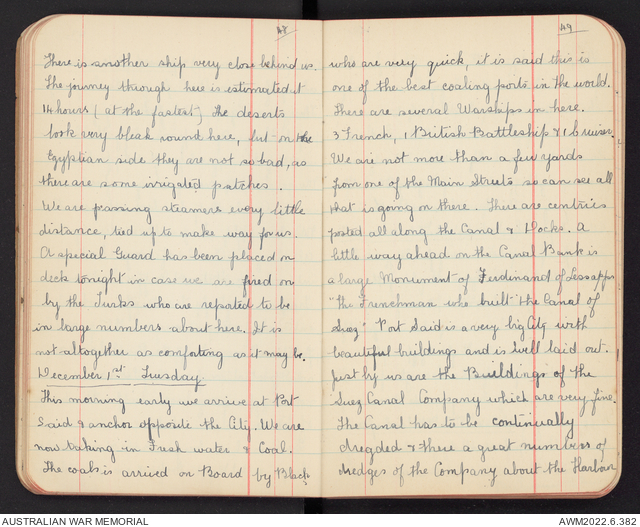 48
There is another ship very close behind us.
The journey through here is estimated at
14 hours (at the fastest) The deserts
look very bleak round here, but on the
Egyptian side they are not so bad, as
there are some irrigated patches.
We are passing steamers every little
distance, tied up to make way for us.
A special Guard has been placed on
deck tonight in case we are fired on
by the Turks who are reported to be
in large numbers about here. It is
not altogether as comforting as it may be.
December 1st Tuesday.
This morning early we arrive at Port
Said & anchor opposite the City. We are
now taking in Fresh water & Coal.
The coals is arrived on Board by Black
49
who are very quick, it is said this is
one of the best coaling ports in the world.
There are several Warships in here.
3 French, 1 British Battleship & 1 Cruiser.
We are not more than a few yards
from one of the Main Streets so can see all
that is going on there. There are centries
posted all along the Canal & Docks. A
little way ahead on the Canal Bank is
a large Monument of Ferdinand of Lessapps
"the Frenchman who built the Canal of
Suez" Port Said is a very big City with
beautiful buildings and is well laid out.
Just by us are the Buildings of the
Suez Canal Company which are very fine.
The Canal has to be continually
dregded & there a great numbers of
dredges of the Company about the Harbour
AUSTRALIAN WAR MEMORIAL
AWM2022.6.382